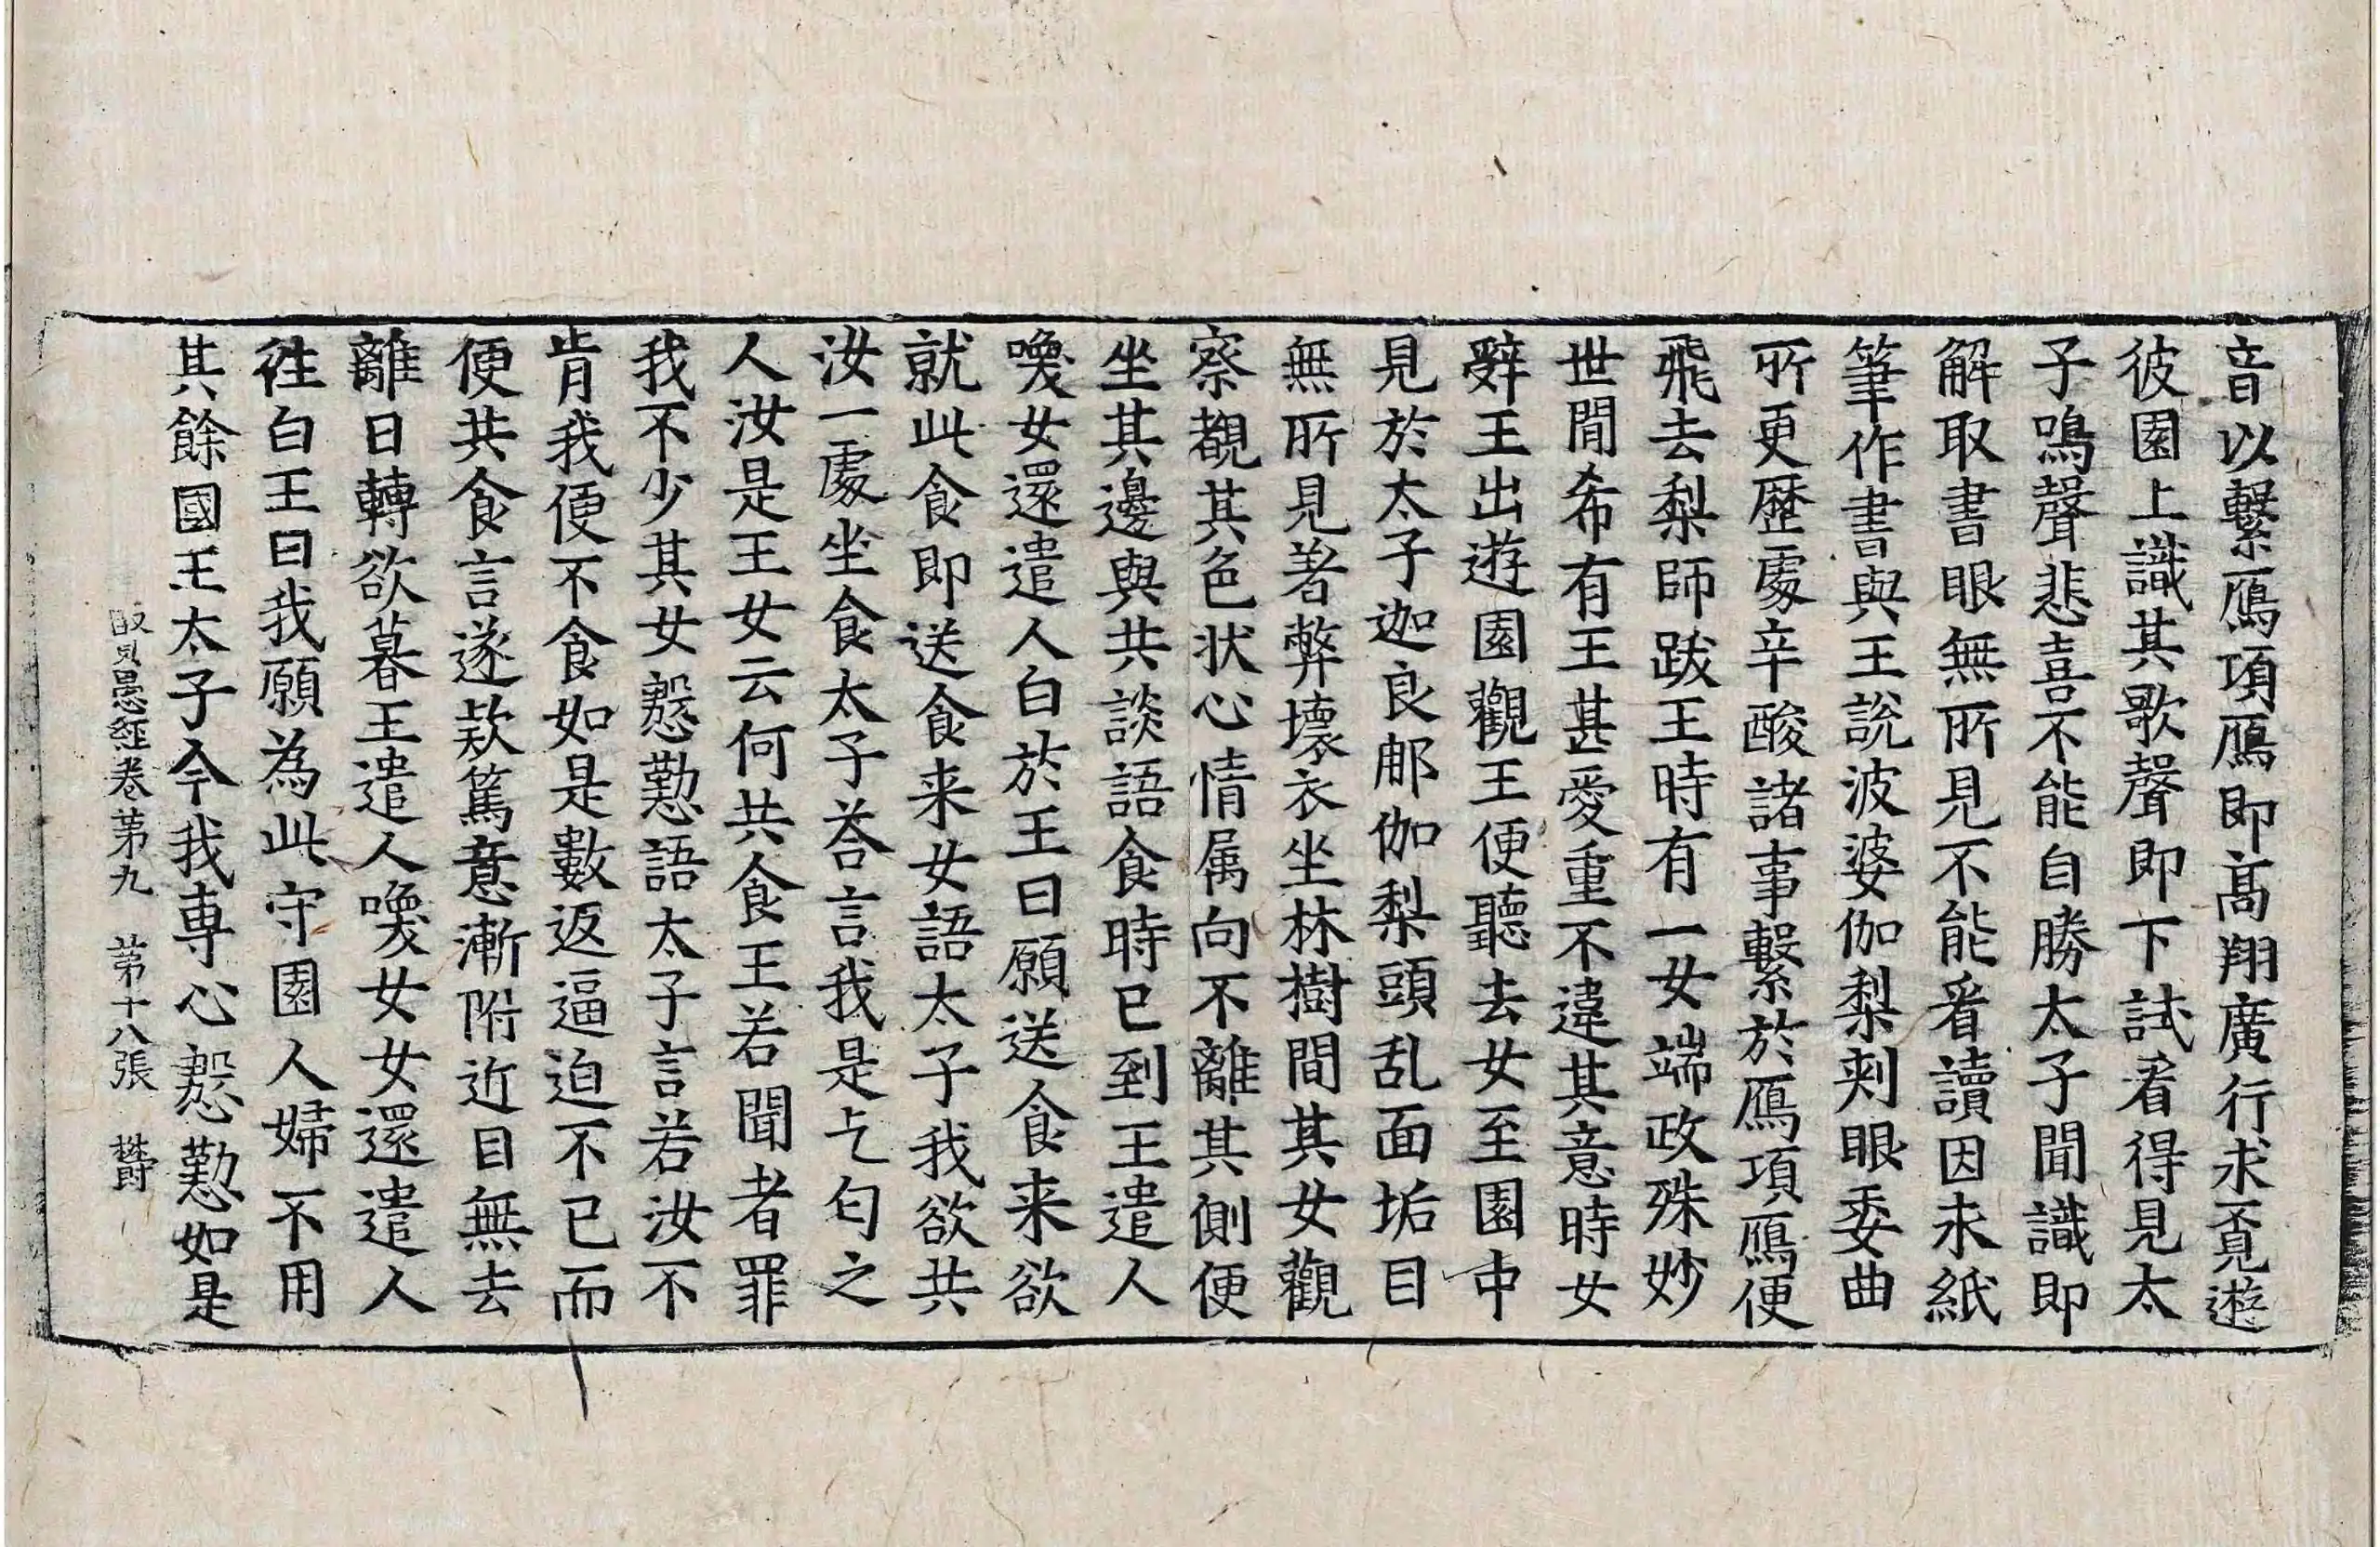 音以繫鴈項鴈即高翔廣行求覓遊
彼園上識其歌聲即下試看得見太
子鳴聲悲喜不能自勝太子聞識即
解取書眼無所見不能看讀因求紙
筆作書與王說波婆伽梨刾眼委曲
所更歷處辛酸諸事繫於鴈項鴈便
飛去梨師跋王時有一女端政殊妙
世間希有王甚愛重不違其意時女
辭王出遊園觀王便聽去女至園中
見於太子迦良那伽梨頭乱面垢目
無所見著弊壞衣坐林樹間其女觀
察覩其色状心情属向不離其側便
坐其邊與共談語食時已到王遣人
喚女還遣人白於王曰願送食来欲
就此食即送食来女語太子我欲共
汝一處坐食太子荅言我是乞匂之
人汝是王女云何共食王若聞者罪
我不少其女慇懃語太子言若汝不
肯我便不食如是數返逼迫不已而
便共食言遂款篤意漸附近目無去
離日轉欲暮王遣人喚女女還遣人
往白王曰我願為此守園人婦不用
其餘國王太子今我專心慇懃如是
賢愚經卷第九 第十八張 欝